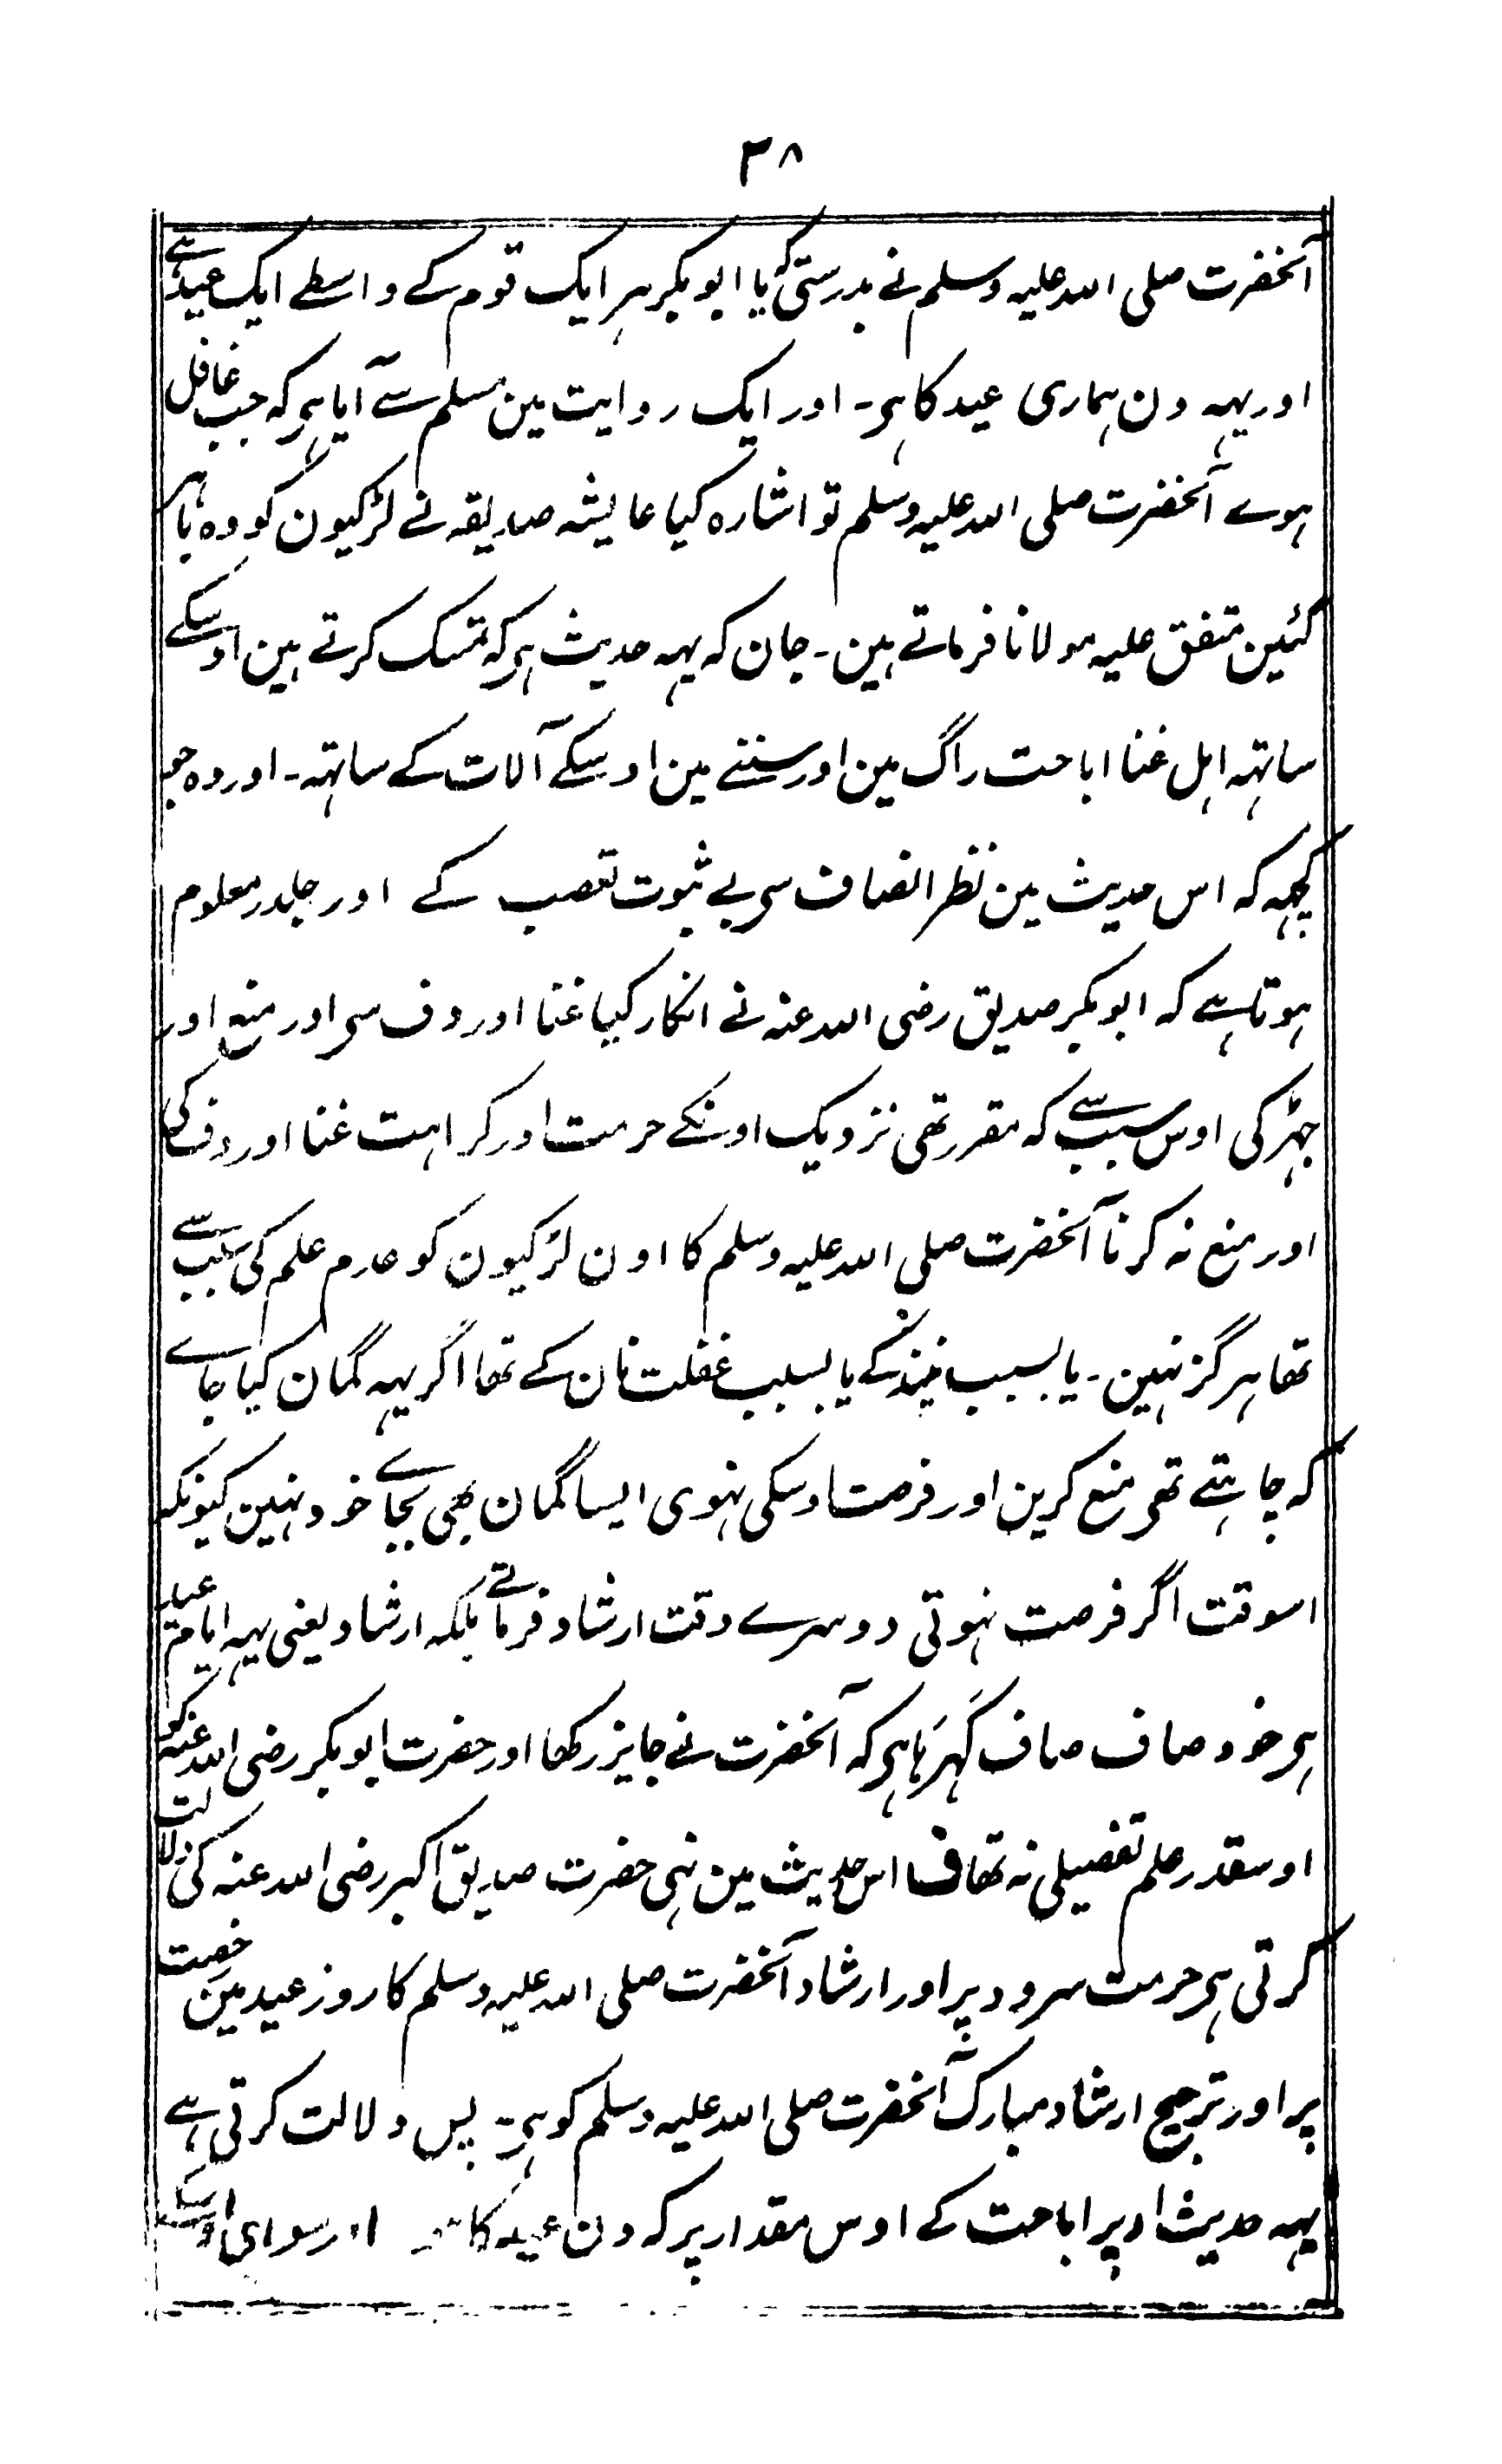 ٣٨
آنحضرت صلی اللہ علیہ وسلم نے بدرستیکہ یا ابو بکر ہر ایک قوم کے واسطے ایک عید ہے
اور یہہ دن ہماری عید کا ہی۔ اور ایک روایت مین مسلم سے آیا ہی کہ جب غافل
ہوے آنحضرت صلی اللہ علیہ وسلم تو اشارہ کیا عایشہ صدیقہ نے لڑکیون کو وہ باہر
گئین متفق علیہ مولانا فرماتے ہین۔ جان کہ یہہ حدیث ہی کہ تمسک کرتے ہین اوسکے
ساتہہ اہل غنا اباحت راگ مین اور سننے مین اوسکے آلات کے ساتہہ۔ اور وہ جو
کچہہ کہ اس حدیث مین نظر انصاف سی بے ثبوت تعصب کے اور جلدر معلوم
ہوتا ہے کہ ابو بکر صدیق رضی اللہ عنہ نے انکار کیا غنا اور دف سی اور منع اور
جہڑکی اوس سبب سے کہ مقرر تھی نزدیک اونکے حرمت اور کراہت غنا اور دف کی
اور منع نہ کرنا آنحضرت صلی اللہ علیہ وسلم کا اون لڑکیون کو عدم علم کی سبب سے
تھا ہرگز نہین۔ یا بسبب نیند کے یا بسبب غفلت کے تھا اگر یہہ گمان کیا جاے
کہ چاہتے تھی منع کرین اور فرصت اوسکی نہوی ایسا گمان بھی بجاے خود نہین کیونکہ
اسوقت اگر فرصت نہوتی دوسرے وقت ارشاد فرماتے بلکہ ارشاد یعنی یہہ ایام عید
ہی خود صاف صاف کہرہا ہی کہ آنحضرت نے جایز رکھا اور حضرت ابو بکر رضی اللہ عنہ کو
اوسقدر علم تفصیلی نہ تھا ف اس حدیث مین نہی حضرت صدیق اکبر رضی اللہ عنہ کی دلالت
کرتی ہی حرمت سرود پر اور ارشاد آنحضرت صلی اللہ علیہ وسلم کا روز عید مین رخصت
پر اور ترجیح ارشاد مبارک آنحضرت صلی اللہ علیہ وسلم کو ہی۔ پس دلالت کرتی ہے
یہہ حدیث اوپر اباحت کے اوس مقدار پر کہ دن عید کا اور سوای اوسکے